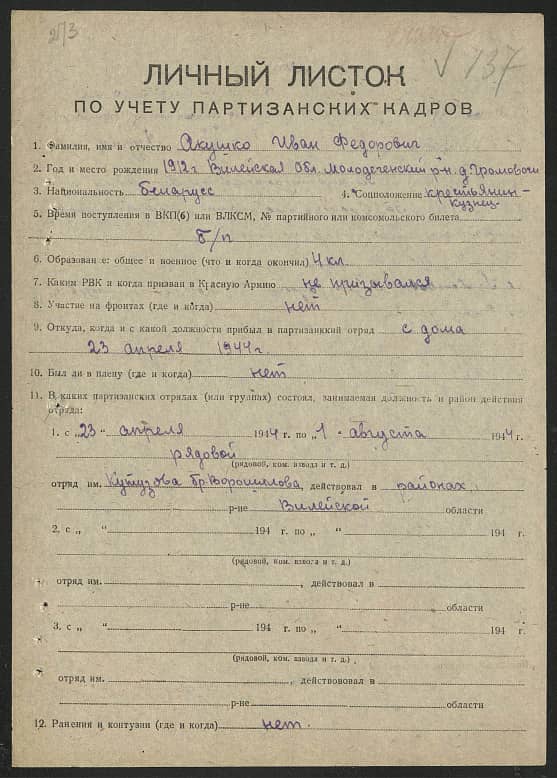 273
137
ЛИЧНЫЙ ЛИСТОК
ПО УЧЕТУ ПАРТИЗАНСКИХ КАДРОВ
1. Фамилия, имя и отчество Якушко Иван Федорович
2. Год и место рождения 1912 г Вилейская Обл. Молодеченский р-н. д. Громовичи
3. Национальность беларусс 4. Соцположение крестьянин-
кузнец.
5. Время поступления в ВКП(б) или ВЛКСМ, № партийного или комсомольского билета
б/п
6. Образован е: общее и военное (что и когда окончил) 4 кл.
7. Каким РВК и когда призван в Красную Армию не призывался
8. Участие на фронтах (где и когда) нет
9. Откуда, когда и с какой должности прибыл в партизанкий отряд с дома
23 апреля 1944 г.
10. Был ли в плену (где и когда) нет
11. В каких партизанских отрялах (или группах) состоял, занимаемая должность и район действия
отряда:
1. с „23" апреля 1944 г. по „1 - августа 1944 г.
рядовой
(рядовой, ком. взвода и т. д.)
отряд им. Кутузова бр. Ворошилова, действовал в районах
р-не Вилейской области
2. с „ " 194 г. по „ " 194 г.
(рядовой, ком. взвода и т. д.)
отряд им. , действовал в
р-не области
3. с „ " 194 г. по „ " 194 г.
(рядовой, ком. взвода и т. д.)
отряд им. , действововал в
р-не области
12. Ранения и контузии (где и когда) нет.